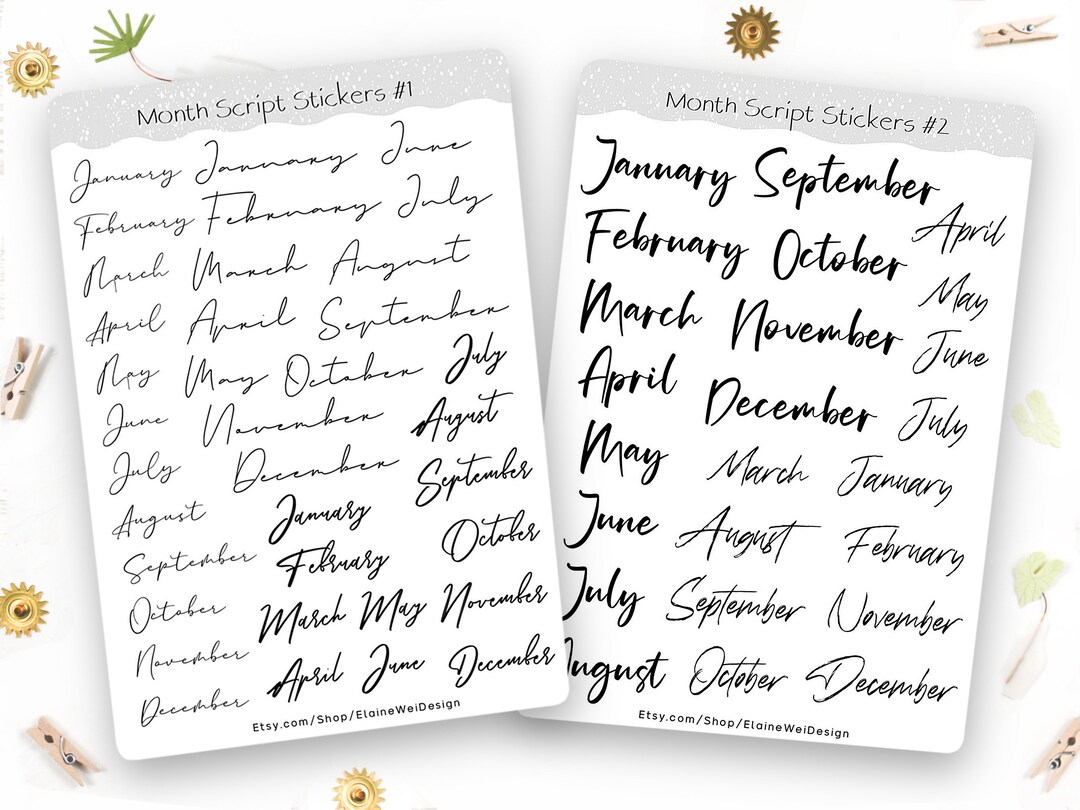 Month Script Stickers #1
January January June
February February July
March March August
April April September
May May October July
June November August
July December September
August January
September February October
October March May November
November April June December
December
Etsy.com/Shop/ElaineWeiDesign
Month Script Stickers #2
January September
April
February October
May
March November
June
April December
July
May March January
June August February
July September November
August October December
Etsy.com/Shop/ElaineWeiDesign